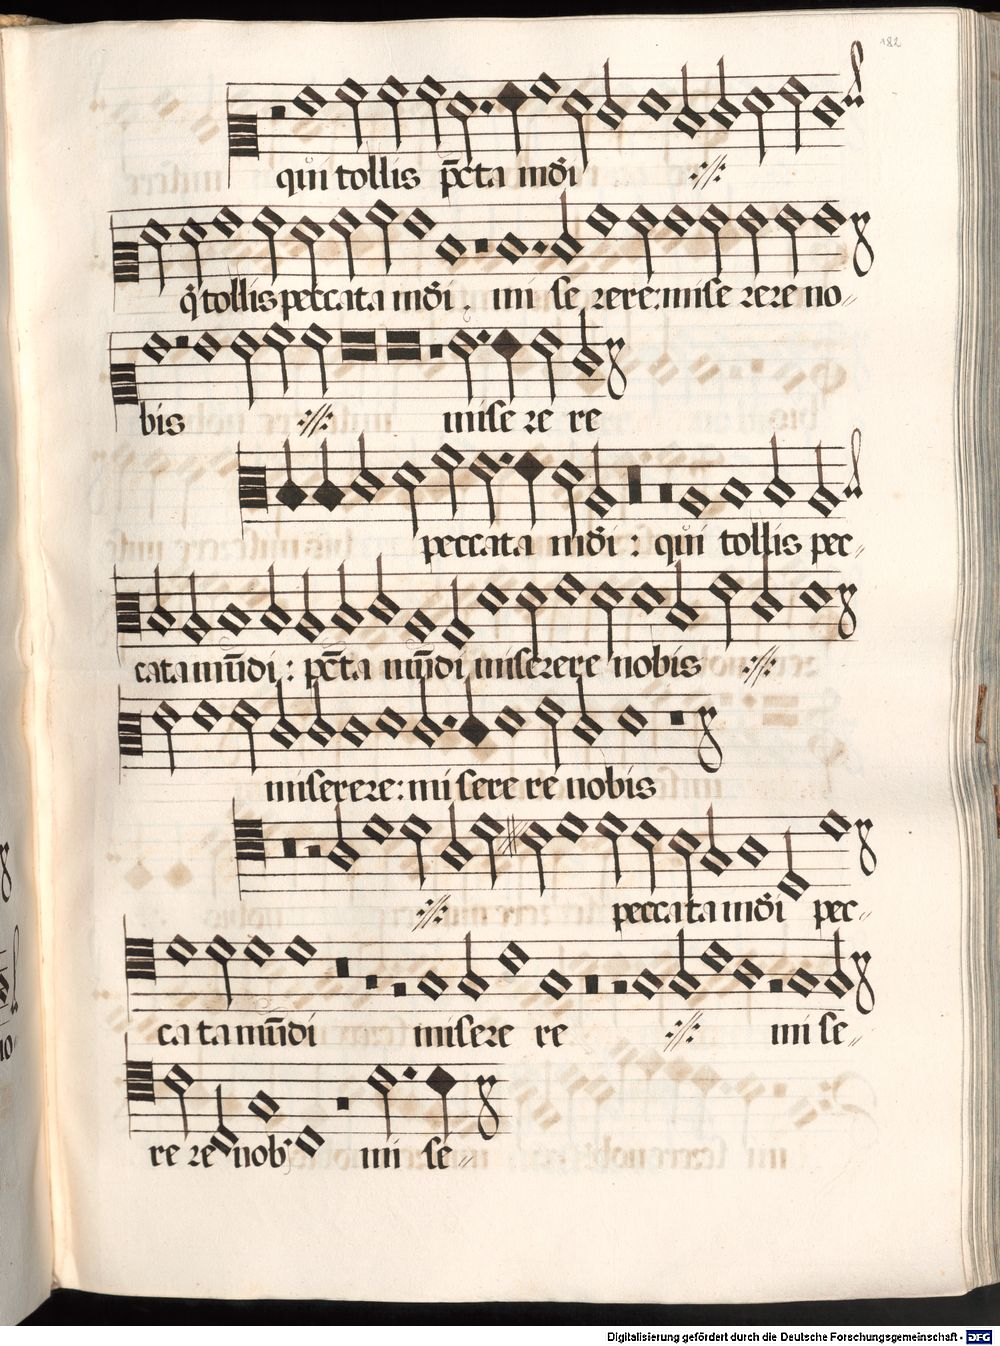 182
qůi tollis p̄cta mūdi ·//·
q̊ tollis peccata mūdi . mi se rere: mise rere no-
bis ·//· mise re re
peccata mūdi : qůi tollis pec-
cata mūndi : p̄cta mūndi miserere nobis ·//·
miserere: mi sere re nobis
·//· peccata mūdi pec-
ca ta mūndi misere re ·//· mi se-
re re nob⁹ mi se-
10-
Digitalisierung gefördert durch die Deutsche Forschungsgemeinschaft - DFG